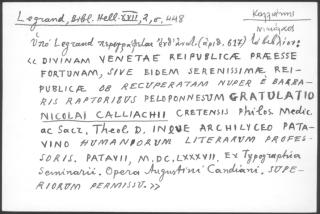 Legrand, Bibl. Hell. XVII, 2, σ. 448
Καλλιάκης
Νικόλαος
Ὑπὸ Legrand περιγράφεται ἐνθ' ἀνωτ. (ἀριθ. 617) τὸ βιβλίον:
«DIVINAM VENETAE REIPUBLICÆ PRÆESSE
FORTUNAM, SIVE EIDEM SERENISSIMÆ REI-
PUBLICÆ OB RECUPERATAM NUPER E BARBA-
RIS RAPTORIBUS PELOPONNESUM GRATULATIO
NICOLAI CALLIACHII CRETENSIS Philos. Medic.
ac Sacr. Theol D. INQUE ARCHILYCEO PATA-
VINO HUMANIORUM LITERARUM PROFES-
SORIS. PATAVII, M.DC.LXXXVII. Ex Typographia
Seminarii. Opera Augustini Candiani. SUPE-
RIORUM PERMISSU.»